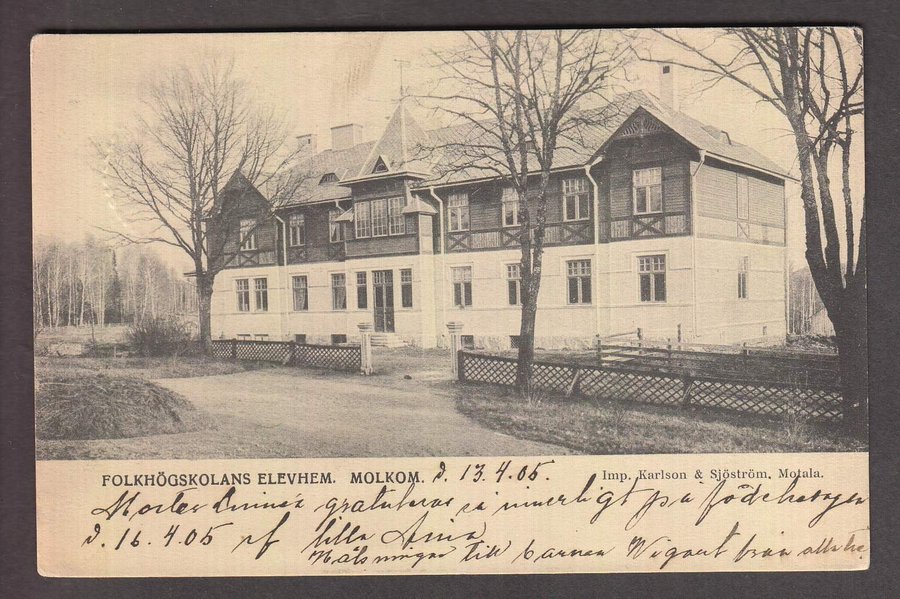 FOLKHÖGSKOLANS ELEVHEM. MOLKOM. d. 13.4.05. Imp. Karlson & Sjöström, Motala.
Moster gratuleras så innerligt på födelsedagen
d. 16.4.05 af lilla Anna
Hälsningar till barnen från alla